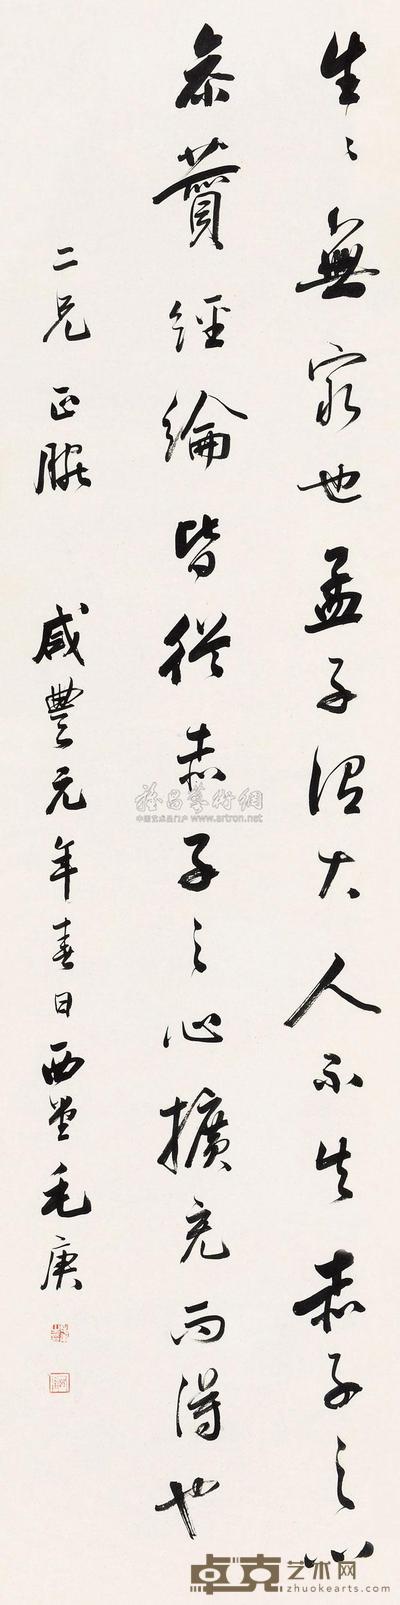 生〻無窮也孟子謂大人不失赤子之心
参賛經綸皆從赤子之心擴充而得也
二兄正腕
咸豐元年春日西堂毛庚
雅昌藝術網
中国艺术品门户 www.artron.net
卓克艺术网
zhuokearts.com